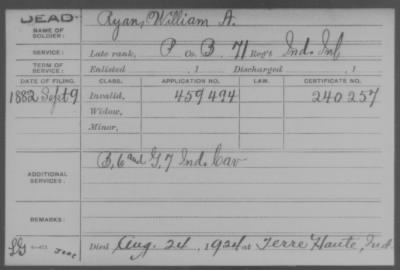 DEAD
NAME OF SOLDIER: Ryan, William A.
SERVICE: Late rank, P Co. B. 71 Reg't Ind. Inf
TERM OF SERVICE: Enlisted , 1 Discharged , 1
DATE OF FILING. CLASS. APPLICATION NO. LAW. CERTIFICATE NO.
1882 Sept 9 Invalid, 459494 240257
Widow,
Minor,
ADDITIONAL SERVICES: B, 6 and G, 7 Ind. Cav
REMARKS:
Died Aug. 24, 1924 at Terre Haute, Ind